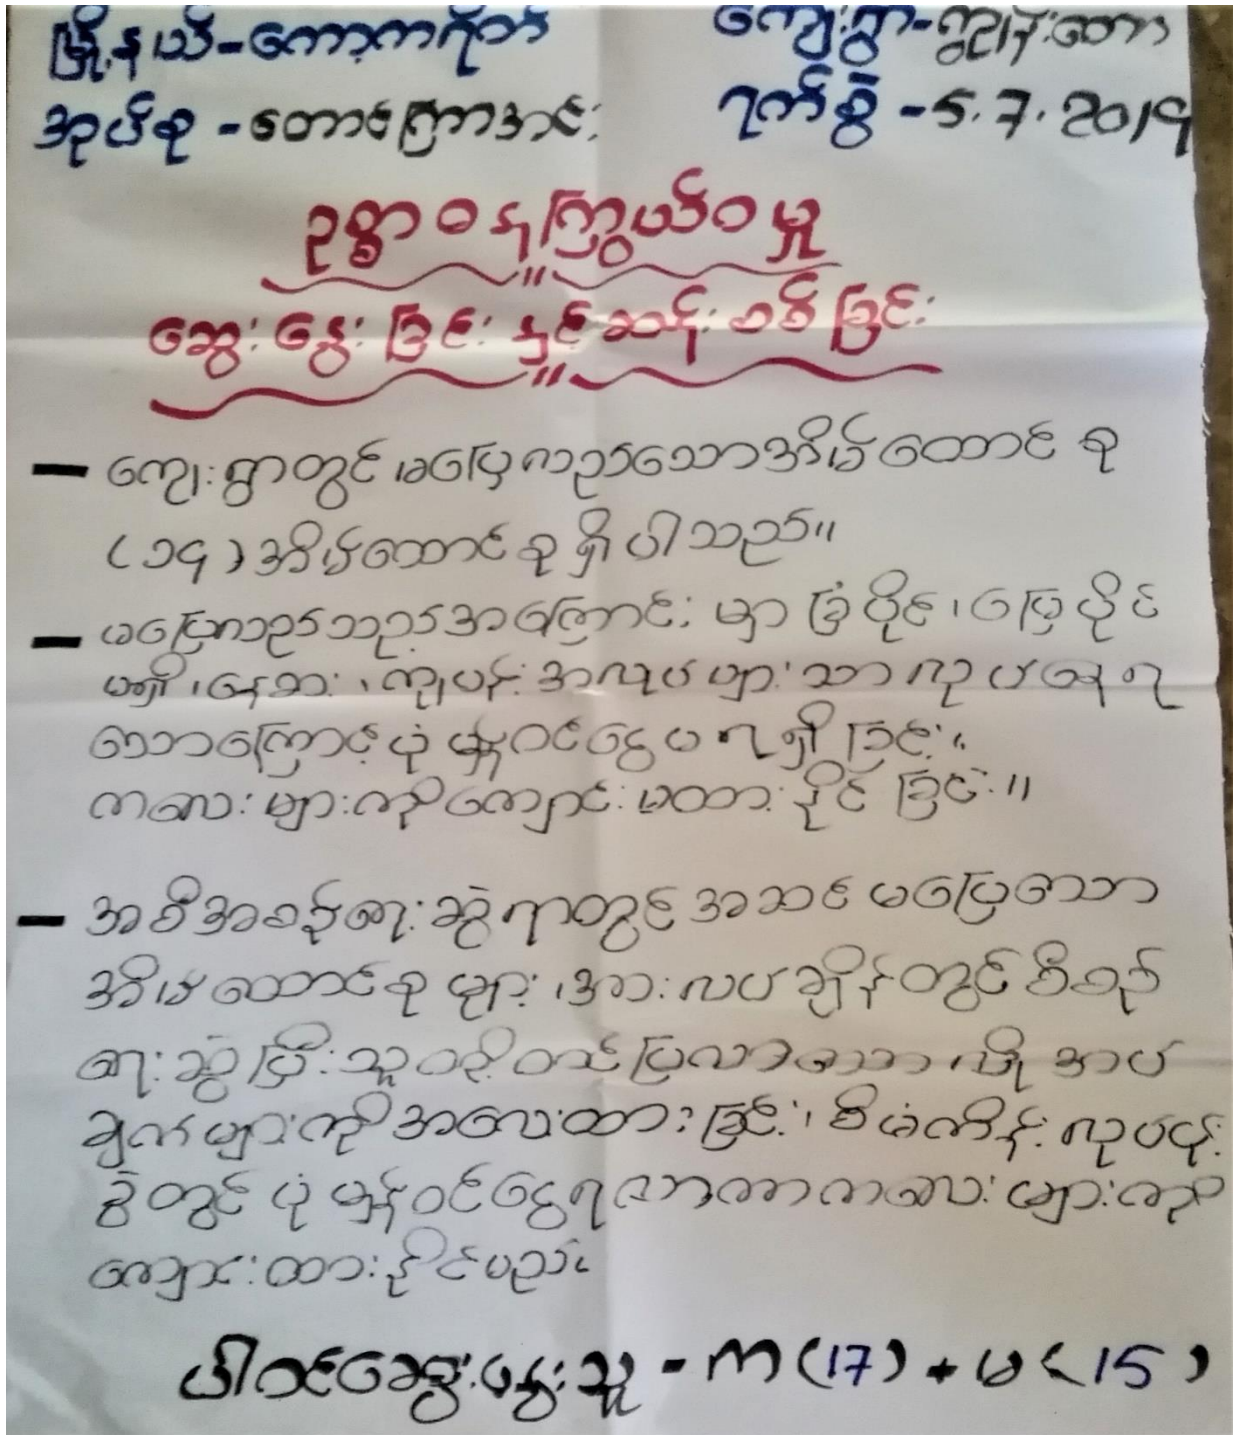 မြို့နယ်-ကော့ကရိတ် ကျေးရွာ-ကျွန်းတော
အုပ်စု - တောင်ကြာအင်း ရက်စွဲ - 5.7.2019
ဥစ္စာဓနကြွယ်ဝမှု
ဆွေးနွေးခြင်းနှင့်ဆန်းစစ်ခြင်း
- ကျေးရွာတွင်မပြေလည်သောအိမ်ထောင်စု
(၁၄) အိမ်ထောင်စုရှိပါသည်။
- မပြေလည်သည့်အကြောင်းမှာ ခြံပိုင်၊ မြေပိုင်
မရှိ၊ နေ့စား၊ ကျပန်းအလုပ်များသာလုပ်နေရ
သောကြောင့်ပုံမှန်ဝင်ငွေမရရှိခြင်း။
ကလေးများကိုကျောင်းမထားနိုင်ခြင်း။
- အစီအစဉ်ရေးဆွဲရာတွင်အဆင်မပြေသော
အိမ်ထောင်စုများ၊ အားလပ်ချိန်တွင်စီစဉ်
ရေးဆွဲပြီးသူတို့တင်ပြလာသောလိုအပ်
ချက်များကိုအလေးထားခြင်း၊ စီမံကိန်းလုပ်ငန်း
ခွဲတွင်ပုံမှန်ဝင်ငွေရလာကာကလေးများကို
ကျောင်းထားနိုင်မည်။
ပါဝင်ဆွေးနွေးသူ - က (17) + မ (15)